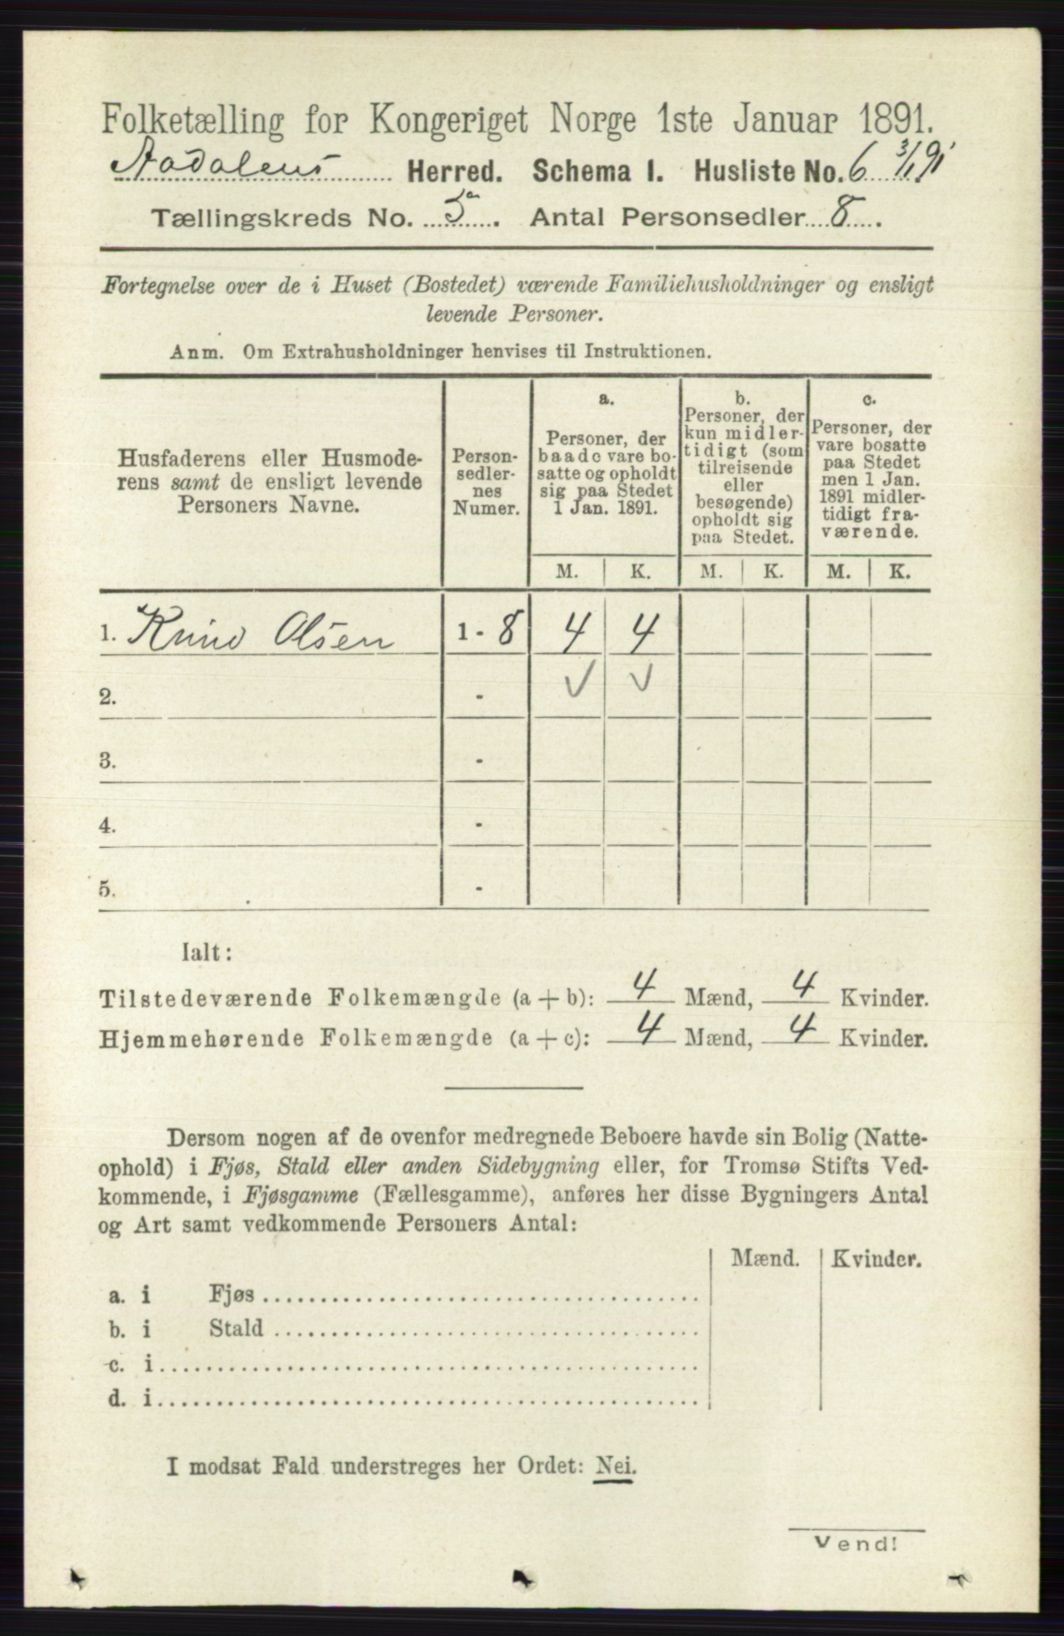 Folketælling for Kongeriget Norge 1ste Januar 1891.
Aadalens Herred. Schema I. Husliste No. 6 3/1 91
Tællingskreds No. 5a. Antal Personsedler 8.
Fortegnelse over de i Huset (Bostedet) værende Familiehusholdninger og ensligt
levende Personer.
Anm. Om Extrahusholdninger henvises til Instruktionen.
Husfaderens eller Husmode-
rens samt de ensligt levende
Personers Navne.
Person-
sedler-
nes
Numer.
a.
Personer, der
baade vare bo-
satte og opholdt
sig paa Stedet
1 Jan. 1891.
b.
Personer, der
kun midler-
tidigt (som
tilreisende
eller
besøgende)
opholdt sig
paa Stedet.
c.
Personer, der
vare bosatte
paa Stedet
men 1 Jan.
1891 midler-
tidigt fra-
værende.
M. K. M. K. M. K.
1. Knud Olsen 1 - 8 4 4
2. - √ √
3. -
4. -
5. -
Ialt:
Tilstedeværende Folkemængde (a + b): 4 Mænd, 4 Kvinder.
Hjemmehørende Folkemængde (a + c): 4 Mænd, 4 Kvinder.
Dersom nogen af de ovenfor medregnede Beboere havde sin Bolig (Natte-
ophold) i Fjøs, Stald eller anden Sidebygning eller, for Tromsø Stifts Ved-
kommende, i Fjøsgamme (Fællesgamme), anføres her disse Bygningers Antal
og Art samt vedkommende Personers Antal:
Mænd. Kvinder.
a. i Fjøs
b. i Stald
c. i
d. i
I modsat Fald understreges her Ordet: Nei.
Vend!